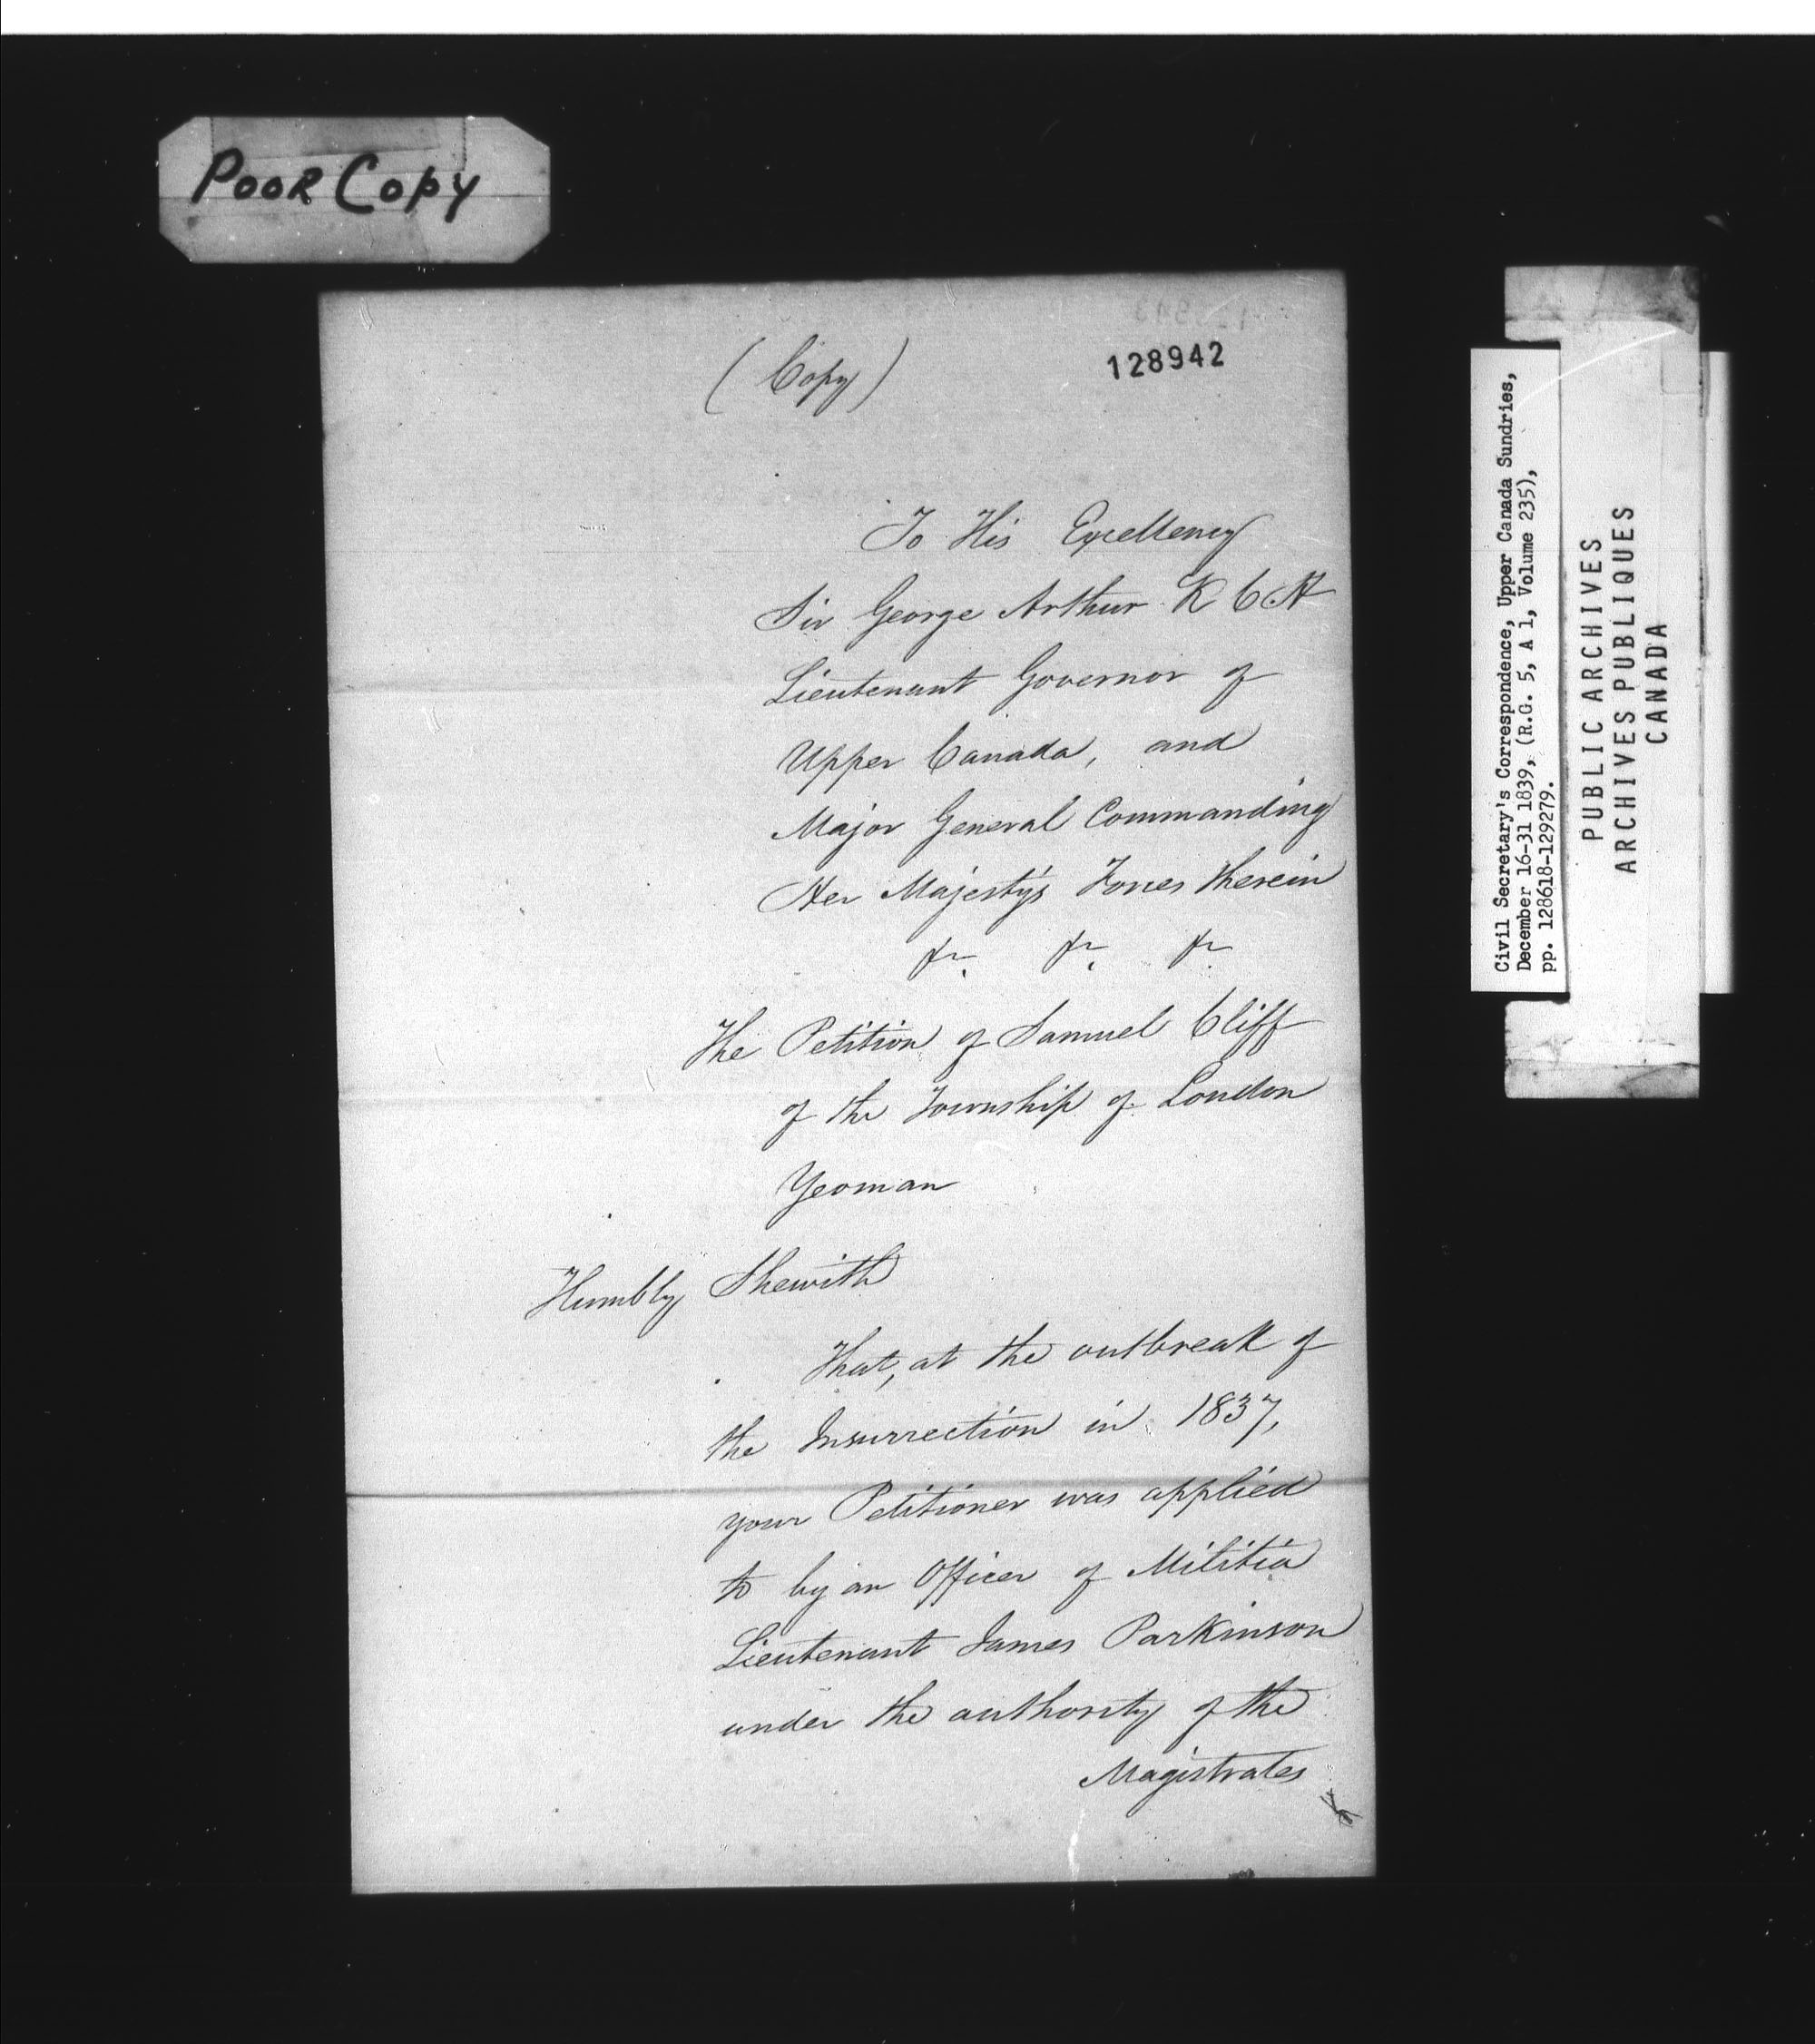 Poor Copy
128942
(Copy)
To His Excellency
Sir George Arthur K C H
Lieutenant Governor of
Upper Canada, and
Major General Commanding
Her Majesty's Forces therein
&c. &c. &c.
The Petition of Samuel Cliff
of the Township of London
Yeoman
Humbly Shewith
That, at the outbreak of
the Insurrection in 1837,
your Petitioner was applied
to by an Officer of Militia
Lieutenant James Parkinson
under the authority of the
Magistrates
Civil Secretary's Correspondence, Upper Canada Sundries,
December 16-31 1839, (R.G. 5, A 1, Volume 235),
pp. 128618-129279.
PUBLIC ARCHIVES
ARCHIVES PUBLIQUES
CANADA